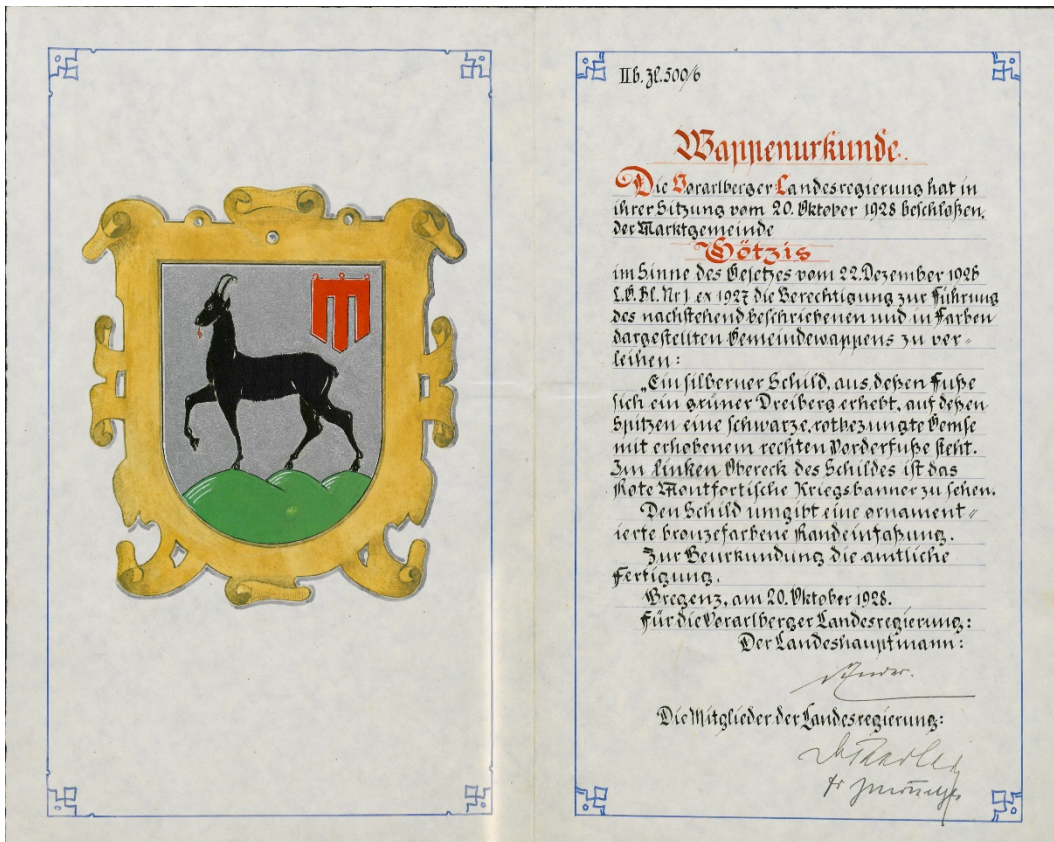 IIb. Zl. 500/6
Wappenurkunde.
Die Vorarlberger Landesregierung hat in
ihrer Sitzung vom 20. Oktober 1928 beschloßen,
der Marktgemeinde
Götzis
im Sinne des Gesetzes vom 22. Dezember 1926
L.G.Bl. Nr 1 ex 1927 die Berechtigung zur Führung
des nachstehend beschriebenen und in Farben
dargestellten Gemeindewappens zu ver-
leihen:
„Ein silberner Schild, aus deßen Fuße
sich ein grüner Dreiberg erhebt, auf deßen
Spitzen eine schwarze, rotbezungte Gemse
mit erhobenem rechten Vorderfuße steht.
Im linken Obereck des Schildes ist das
Rote Montfortische Kriegsbanner zu sehen.
Den Schild umgibt eine ornament-
ierte bronzefarbene Randeinfaßung.
Zur Beurkundung die amtliche
Fertigung.
Bregenz, am 20. Oktober 1928.
Für die Vorarlberger Landesregierung:
Der Landeshauptmann:
Die Mitglieder der Landesregierung: